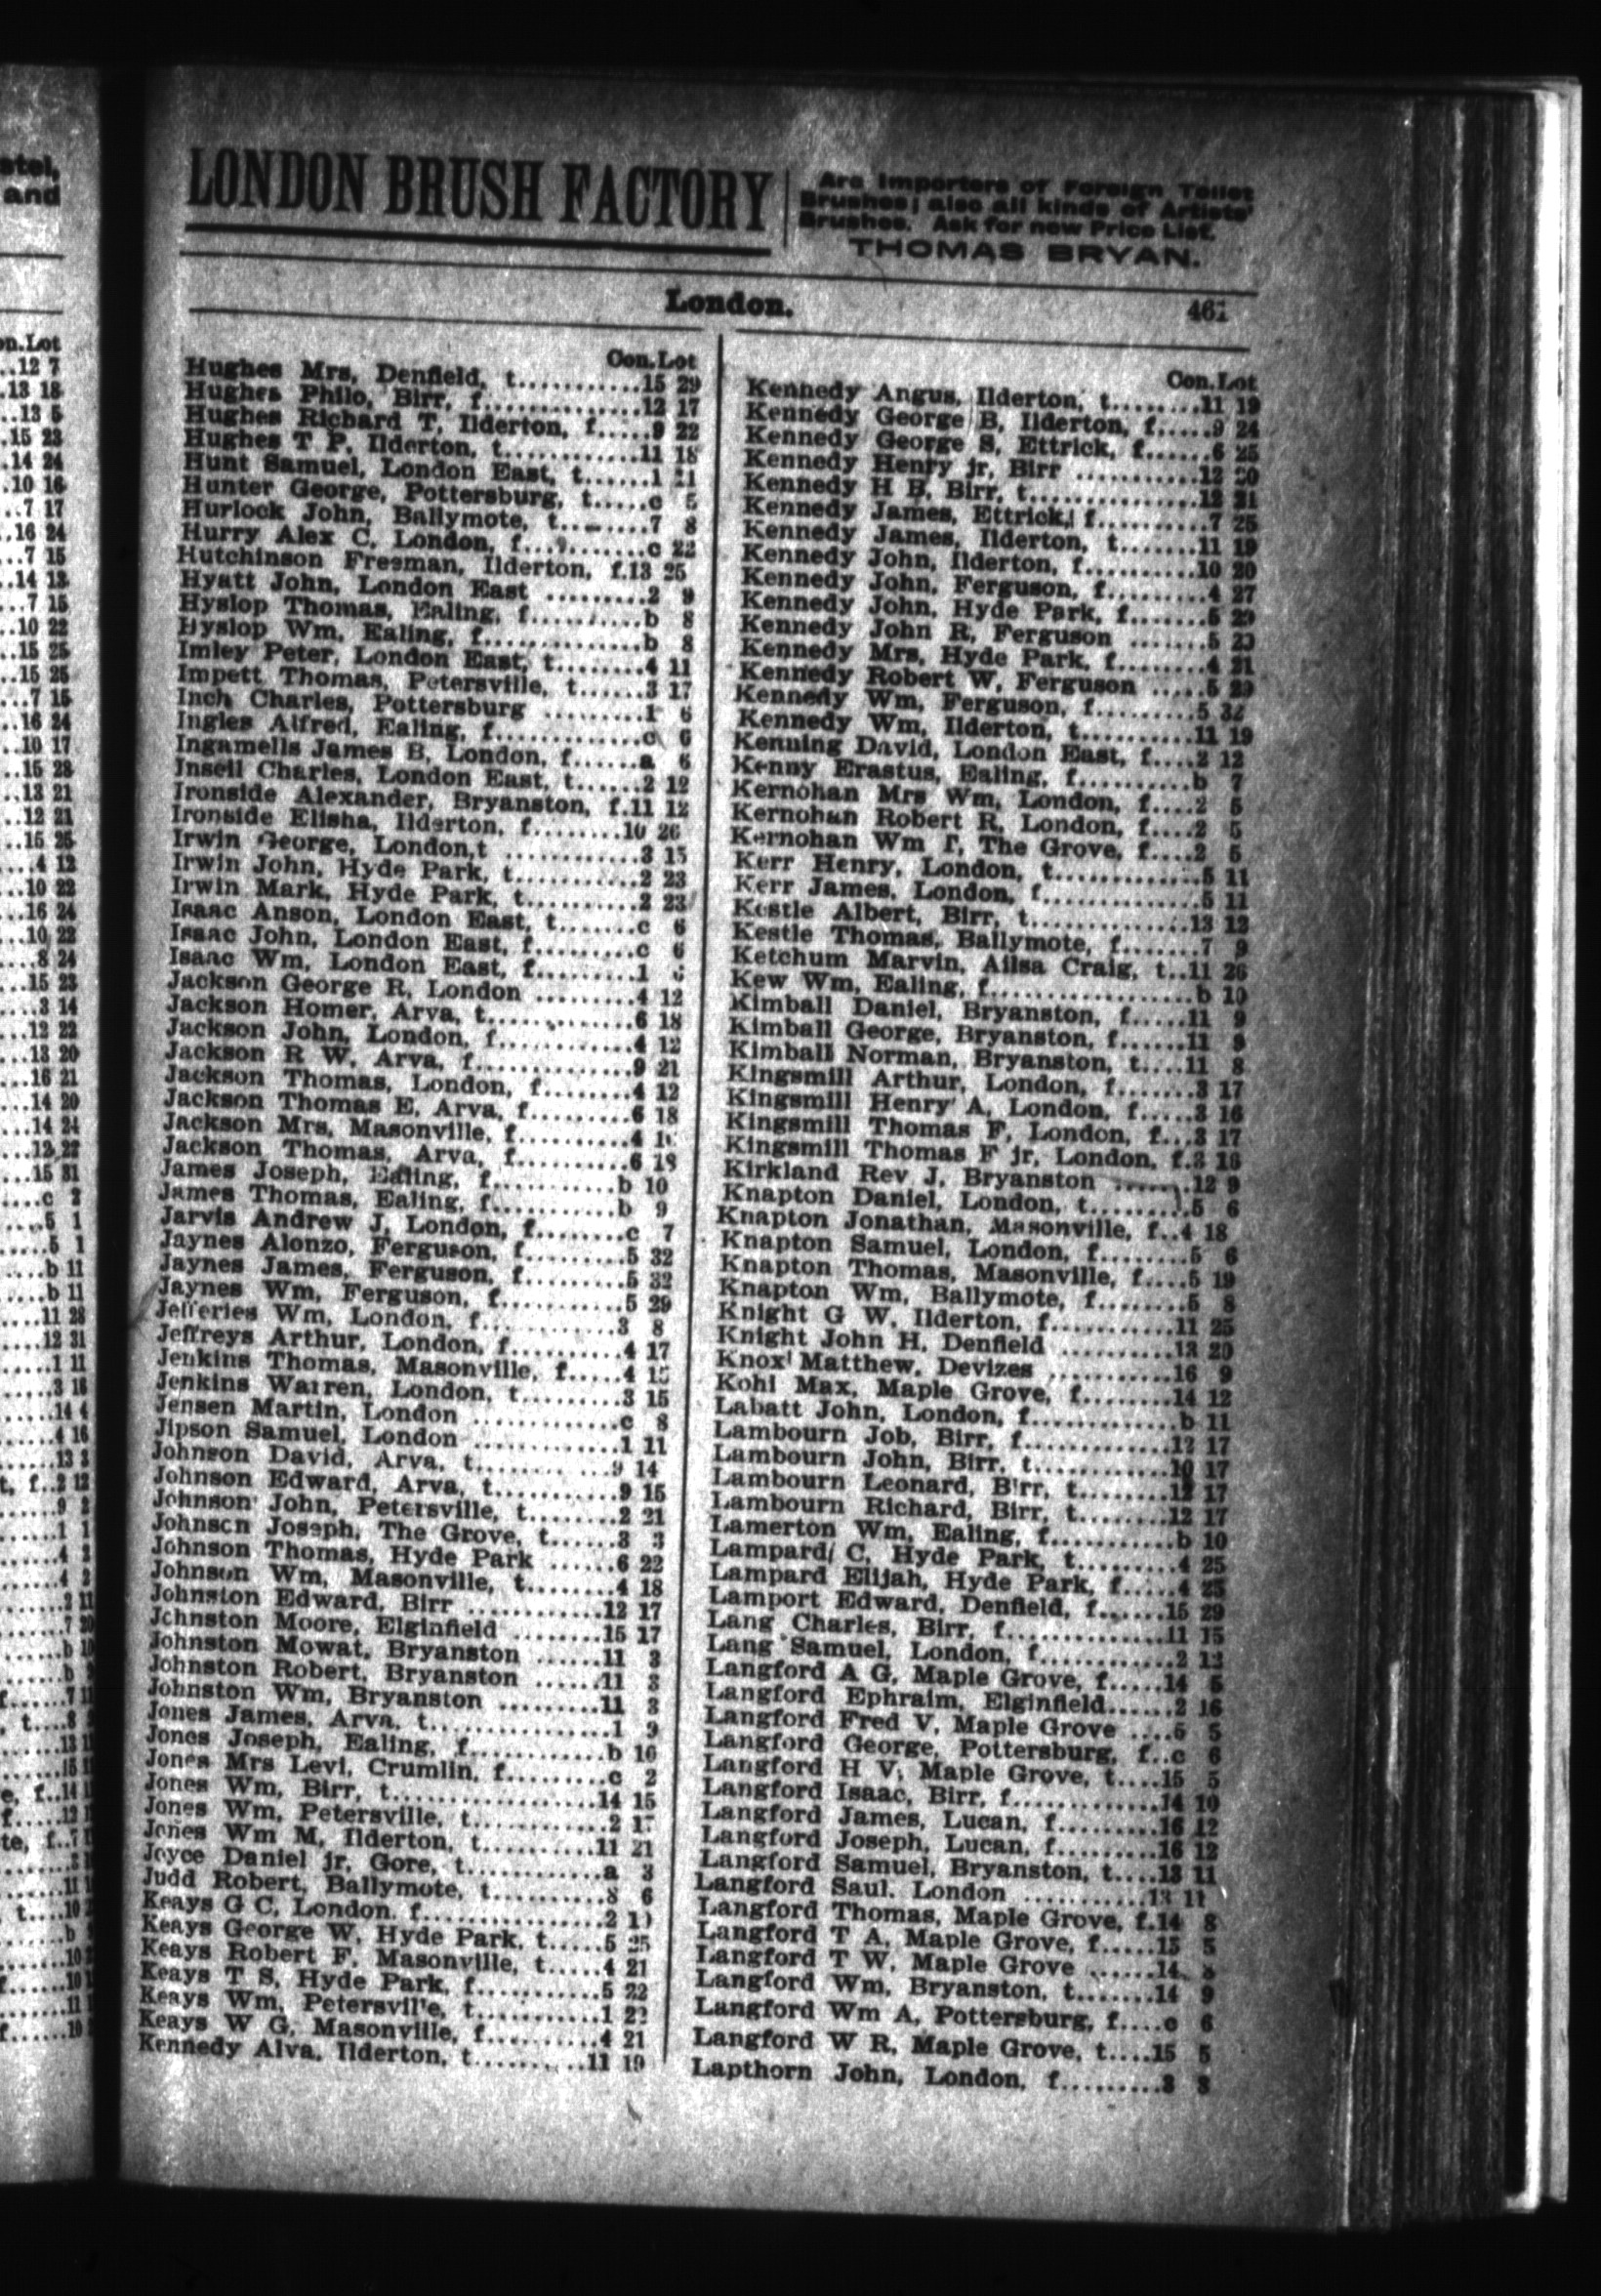 LONDON BRUSH FACTORY
Are Importers of Foreign Toilet
Brushes; also all kinds of Artists'
Brushes. Ask for new Price List.
THOMAS BRYAN.
London.
Con. Lot
Hughes Mrs, Denfield, t...........15 29
Hughes Philo, Birr, f..............12 17
Hughes Richard T, Ilderton, f.....9 22
Hughes T P, Ilderton, t............11 18
Hunt Samuel, London East, t......1
Hunter George, Pottersburg, t.....c 5
Hurlock John, Ballymote, t........7 8
Hurry Alex C, London, f..........c 22
Hutchinson Freeman, Ilderton, f.13 25
Hyatt John, London East .........2 9
Hyslop Thomas, Ealing, f..........b 8
Hyslop Wm, Ealing, f..............b 8
Imley Peter, London East, t.......4 11
Impett Thomas, Petersville, t......3 17
Inch Charles, Pottersburg .........1 6
Ingles Alfred, Ealing, f............c 6
Ingamells James B, London, f......a 6
Insell Charles, London East, t......2 12
Ironside Alexander, Bryanston, f.11 12
Ironside Elisha, Ilderton, f........10 26
Irwin George, London,t ............3 15
Irwin John, Hyde Park, t...........2 23
Irwin Mark, Hyde Park, t..........2 23
Isaac Anson, London East, t.......c 6
Isaac John, London East, f.........c 6
Isaac Wm, London East, f..........1
Jackson George R, London .........4 12
Jackson Homer, Arva, t............6 18
Jackson John, London, f...........4 12
Jackson R W, Arva, f..............9 21
Jackson Thomas, London, f........4 12
Jackson Thomas E, Arva, f.........6 18
Jackson Mrs, Masonville, f..........4
Jackson Thomas, Arva, f..........6 18
James Joseph, Ealing, f............b 10
James Thomas, Ealing, f...........b 9
Jarvis Andrew J, London, f........c 7
Jaynes Alonzo, Ferguson, f.........5 32
Jaynes James, Ferguson, f.........5 32
Jaynes Wm, Ferguson, f...........5 29
Jefferies Wm, London, f............3 8
Jeffreys Arthur, London, f..........4 17
Jenkins Thomas, Masonville, f.....4 15
Jenkins Warren, London, t.........3 15
Jensen Martin, London .............c 8
Jipson Samuel, London .............1 11
Johnson David, Arva, t............9 14
Johnson Edward, Arva, t...........9 15
Johnson John, Petersville, t........2 21
Johnson Joseph, The Grove, t......3 3
Johnson Thomas, Hyde Park ......6 22
Johnson Wm, Masonville, t........4 18
Johnston Edward, Birr ............12 17
Johnston Moore, Elginfield ........15 17
Johnston Mowat, Bryanston ......11 3
Johnston Robert, Bryanston ......11 3
Johnston Wm, Bryanston .........11 3
Jones James, Arva, t...............1 9
Jones Joseph, Ealing, f............b 10
Jones Mrs Levi, Crumlin, f.........c 2
Jones Wm, Birr, t..................14 15
Jones Wm, Petersville, t............2 17
Jones Wm M, Ilderton, t..........11 21
Joyce Daniel jr, Gore, t............a 3
Judd Robert, Ballymote, t..........8 6
Keays G C, London, f...............2
Keays George W, Hyde Park, t.....5 25
Keays Robert F, Masonville, t.....4 21
Keays T S, Hyde Park, f...........5 22
Keays Wm, Petersville, t...........1 22
Keays W G, Masonville, f..........4 21
Kennedy Alva, Ilderton, t..........11 19
Con. Lot
Kennedy Angus, Ilderton, t........11 19
Kennedy George B, Ilderton, f.....9 24
Kennedy George S, Ettrick, f......6 25
Kennedy Henry jr, Birr ...........12 20
Kennedy H B, Birr, t..............12 21
Kennedy James, Ettrick, f..........7 25
Kennedy James, Ilderton, t.......11 19
Kennedy John, Ilderton, f..........10 20
Kennedy John, Ferguson, f........4 27
Kennedy John, Hyde Park, f.......5 29
Kennedy John R, Ferguson .......5
Kennedy Mrs, Hyde Park, f........4 21
Kennedy Robert W, Ferguson .....5 29
Kennedy Wm, Ferguson, f..........5 32
Kennedy Wm, Ilderton, t..........11 19
Kenning David, London East, f....2 12
Kenny Erastus, Ealing, f..........b 7
Kernohan Mrs Wm, London, f....2 5
Kernohan Robert R, London, f....2 5
Kernohan Wm T, The Grove, f....2 5
Kerr Henry, London, t.............5 11
Kerr James, London, f..............5 11
Kestle Albert, Birr, t..............13 12
Kestle Thomas, Ballymote, f.......7 9
Ketchum Marvin, Ailsa Craig, t..11 26
Kew Wm, Ealing, f.................b 10
Kimball Daniel, Bryanston, f.....11 9
Kimball George, Bryanston, f......11 9
Kimball Norman, Bryanston, t....11 8
Kingsmill Arthur, London, f.......3 17
Kingsmill Henry A, London, f.....3 16
Kingsmill Thomas F, London, f...3 17
Kingsmill Thomas F jr, London, f.3 16
Kirkland Rev J, Bryanston .......12 9
Knapton Daniel, London, t.........5 6
Knapton Jonathan, Masonville, f..4 18
Knapton Samuel, London, f........5 6
Knapton Thomas, Masonville, f....5 19
Knapton Wm, Ballymote, f........5 8
Knight G W, Ilderton, f...........11 25
Knight John H, Denfield ..........13 20
Knox Matthew, Devizes ...........16 9
Kohl Max, Maple Grove, f.........14 12
Labatt John, London, f.............b 11
Lambourn Job, Birr, f.............12 17
Lambourn John, Birr, t............10 17
Lambourn Leonard, Birr, t........12 17
Lambourn Richard, Birr, t........12 17
Lamerton Wm, Ealing, f...........b 10
Lampard C, Hyde Park, t.........4 25
Lampard Elijah, Hyde Park, f.....4 25
Lamport Edward, Denfield, f......15 29
Lang Charles, Birr, f..............11 15
Lang Samuel, London, f............2 12
Langford A G, Maple Grove, f.....14 5
Langford Ephraim, Elginfield......2 16
Langford Fred V, Maple Grove ....5 5
Langford George, Pottersburg, f..c 6
Langford H V, Maple Grove, t....15 5
Langford Isaac, Birr, f.............14 10
Langford James, Lucan, f.........16 12
Langford Joseph, Lucan, f.........16 12
Langford Samuel, Bryanston, t....13 11
Langford Saul, London ............13 11
Langford Thomas, Maple Grove, f.14 8
Langford T A, Maple Grove, f.....15 5
Langford T W, Maple Grove ......14 8
Langford Wm, Bryanston, t.......14 9
Langford Wm A, Pottersburg, f....c 6
Langford W R, Maple Grove, t....15 5
Lapthorn John, London, f.........3 3